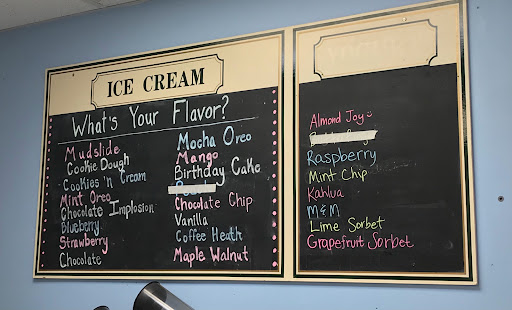 ICE CREAM
What's Your Flavor?
Mudslide
Cookie Dough
Cookies 'n Cream
Mint Oreo
Chocolate Implosion
Blueberry
Strawberry
Chocolate
Mocha Oreo
Mango
Birthday Cake
Chocolate Chip
Vanilla
Coffee Heath
Maple Walnut
YOGURT
Almond Joy
Raspberry
Mint Chip
Kahlua
M&M
Lime Sorbet
Grapefruit Sorbet